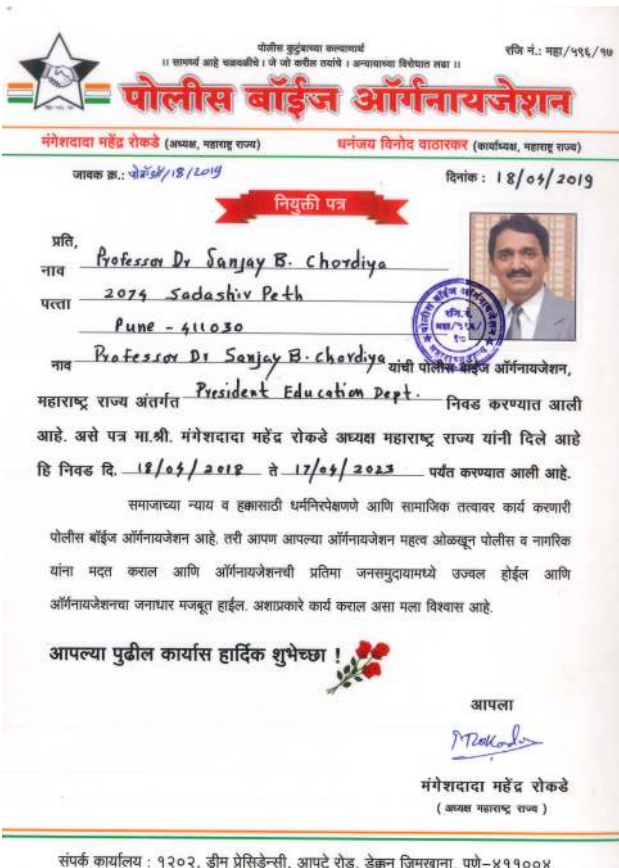 पोलीस कुटुंबाच्या कल्याणार्थ
।। सामर्थ्य आहे चळवळीचे । जे जो करील तयाचे । अन्यायाच्या विरोधात लढा ।।
रजि नं.: महा/५९६/१७
पोलीस बॉईज ऑर्गनायजेशन
मंगेशदादा महेंद्र रोकडे (अध्यक्ष, महाराष्ट्र राज्य) धनंजय विनोद वाठारकर (कार्याध्यक्ष, महाराष्ट्र राज्य)
जावक क्र.: पोबॉऑ/18/2019 दिनांक : 18/05/2019
नियुक्ती पत्र
प्रति,
नाव Professor Dr Sanjay B. Chordiya
पत्ता 2074 Sadashiv Peth
Pune - 411030
पोलीस बॉईज ऑर्गनायजेशन
रजि. नं.
महा/५९६/
१७
महाराष्ट्र राज्य
नाव Professor Dr Sanjay B. Chordiya यांची पोलीस बॉईज ऑर्गनायजेशन,
महाराष्ट्र राज्य अंतर्गत President Education Dept. निवड करण्यात आली
आहे. असे पत्र मा.श्री. मंगेशदादा महेंद्र रोकडे अध्यक्ष महाराष्ट्र राज्य यांनी दिले आहे
हि निवड दि. 18/05/2018 ते 17/05/2023 पर्यंत करण्यात आली आहे.
समाजाच्या न्याय व हक्कासाठी धर्मनिरपेक्षणणे आणि सामाजिक तत्वावर कार्य करणारी
पोलीस बॉईज ऑर्गनायजेशन आहे. तरी आपण आपल्या ऑर्गनायजेशन महत्व ओळखून पोलीस व नागरिक
यांना मदत कराल आणि ऑर्गनायजेशनची प्रतिमा जनसमुदायामध्ये उज्वल होईल आणि
ऑर्गनायजेशनचा जनाधार मजबूत हाईल. अशाप्रकारे कार्य कराल असा मला विश्वास आहे.
आपल्या पुढील कार्यास हार्दिक शुभेच्छा !
आपला
मंगेशदादा महेंद्र रोकडे
( अध्यक्ष महाराष्ट्र राज्य )
संपर्क कार्यालय : १२०२, ड्रीम प्रेसिडेन्सी, आपटे रोड, डेक्कन जिमखाना, पुणे-४११००४